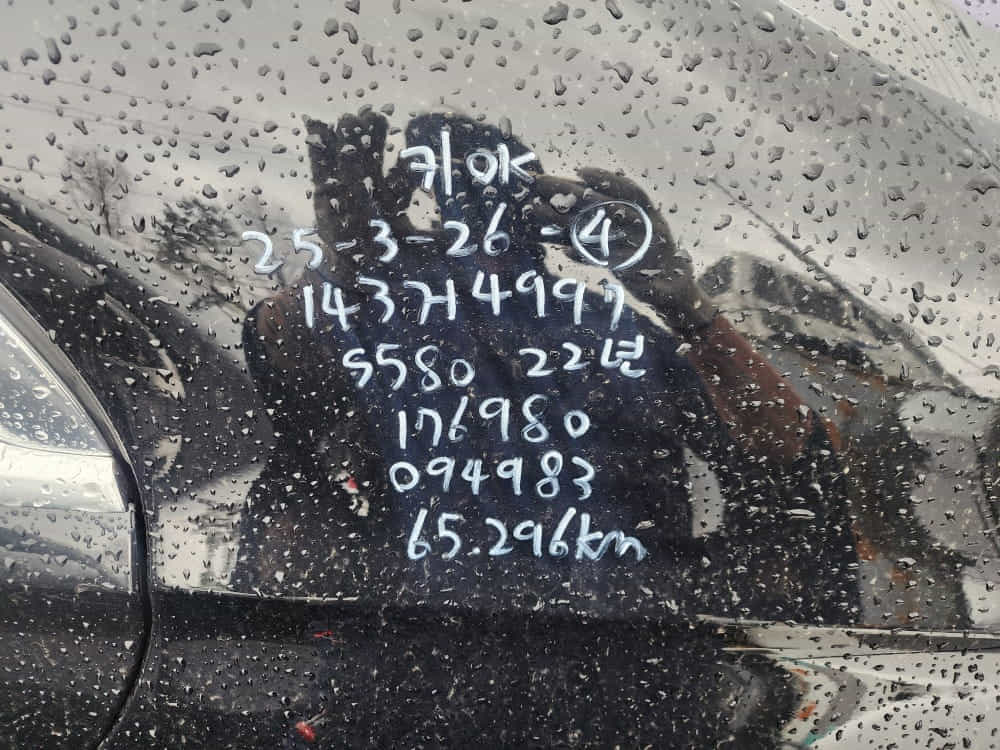 키OK
25-3-26-④
143거4997
S580 22년
176980
094983
65.296km